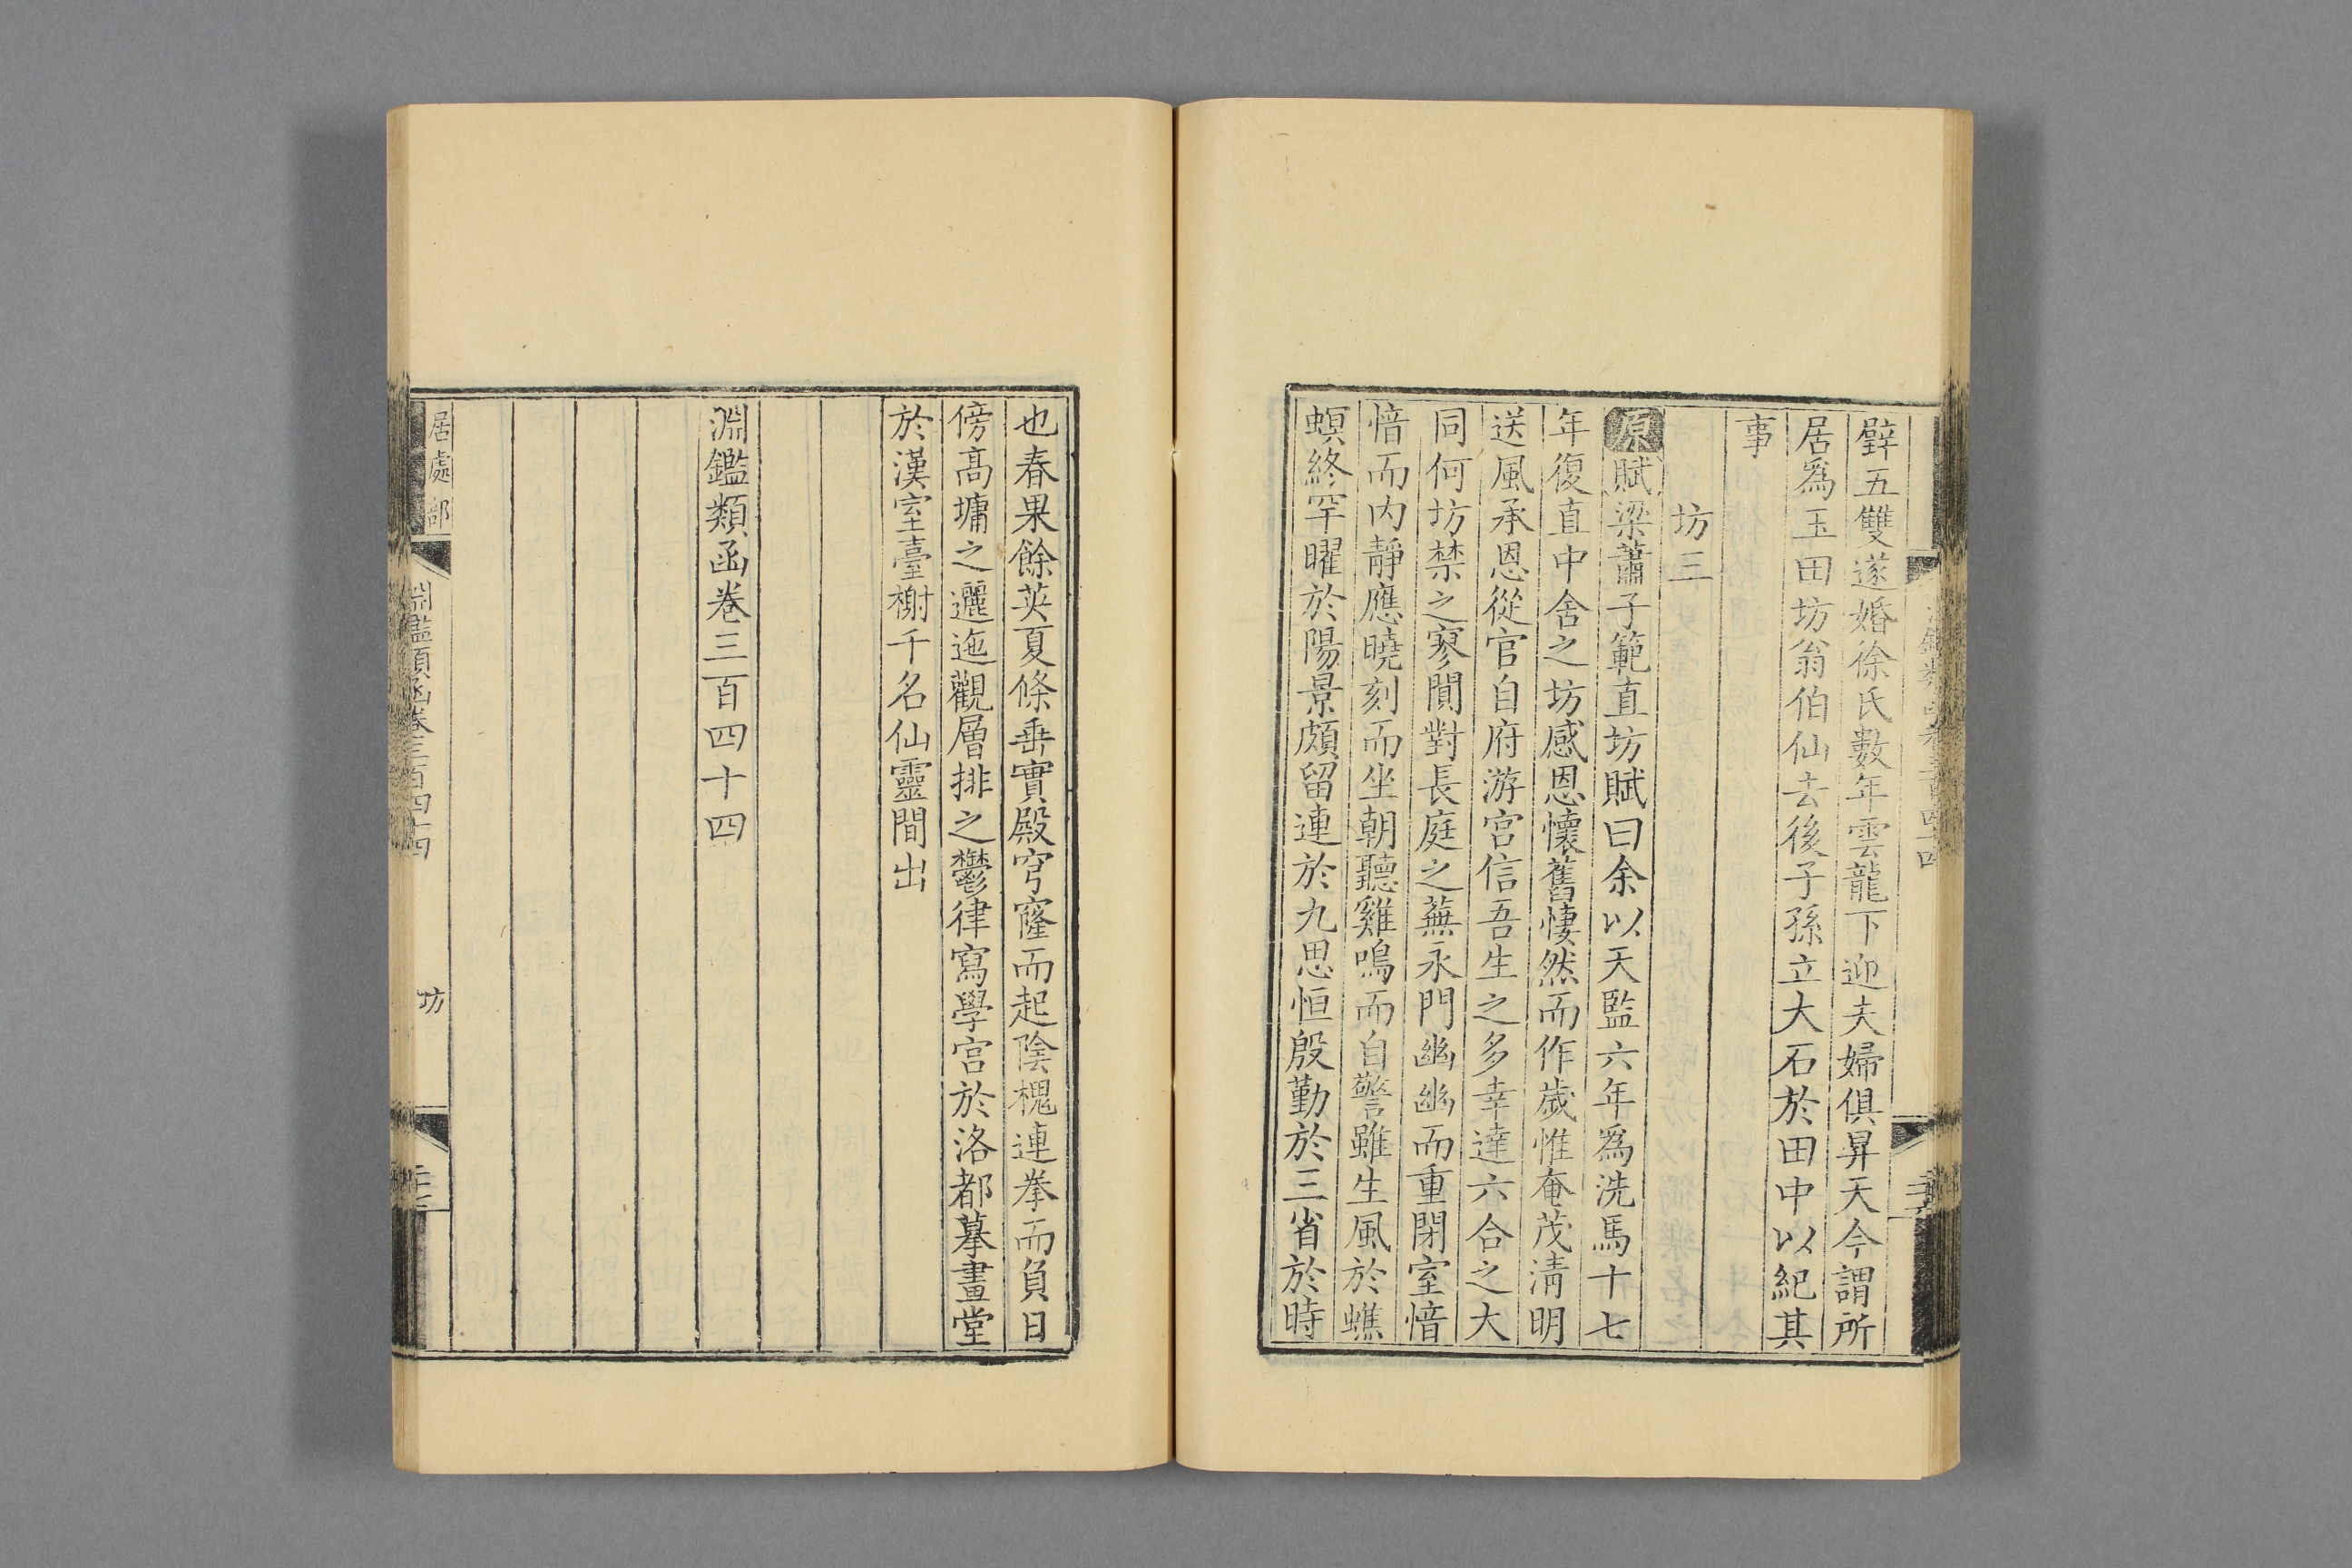 璧五雙遂婚徐氏數年雲龍下迎夫婦俱昇天今謂所
居爲玉田坊翁伯仙去後子孫立大石於田中以紀其
事
坊三
原賦梁蕭子範直坊賦曰余以天監六年爲洗馬十七
年復直中舍之坊感恩懷舊悽然而作歲惟奄茂淸明
送風承恩從官自府游宮信吾生之多幸達六合之大
同何坊禁之寥閴對長庭之蕪永門幽幽而重閉室愔
愔而內靜應曉刻而坐朝聽雞鳴而自警雖生風於蟭
螟終罕曜於陽景頗留連於九思恒殷勤於三省於時
也春果餘英夏條垂實殿穹窿而起陰槐連拳而負日
傍高墉之邐迤觀層排之鬱律寫學宮於洛都摹畫堂
於漢室臺榭千名仙靈間出
淵鑑類函卷三百四十四
居處部
淵鑑類函卷三百四十四
坊